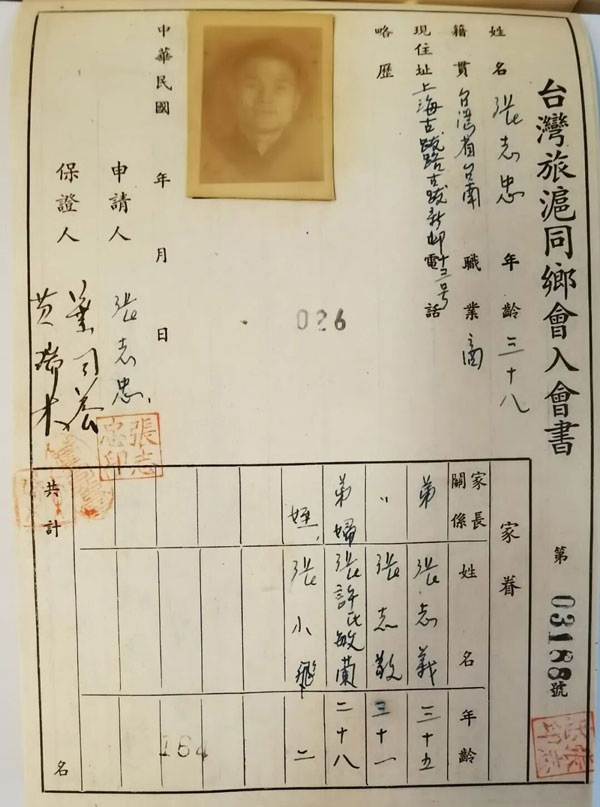 台灣旅滬同鄉會入會書
第 03188 號
姓名 張志忠 年齡 三十八
籍貫 台灣省台南 職業 商
現住址 上海古拔路古拔新邨十三号 電話
略歷
026
中華民國 年 月 日
申請人 張志忠
保證人
張志忠印
家眷
家長關係 姓名 年齡
弟 張志義 三十五
〃 張志敬 三十一
弟婦 張許氏敏蘭 二十八
姪 張小飛 二
164
共計 名